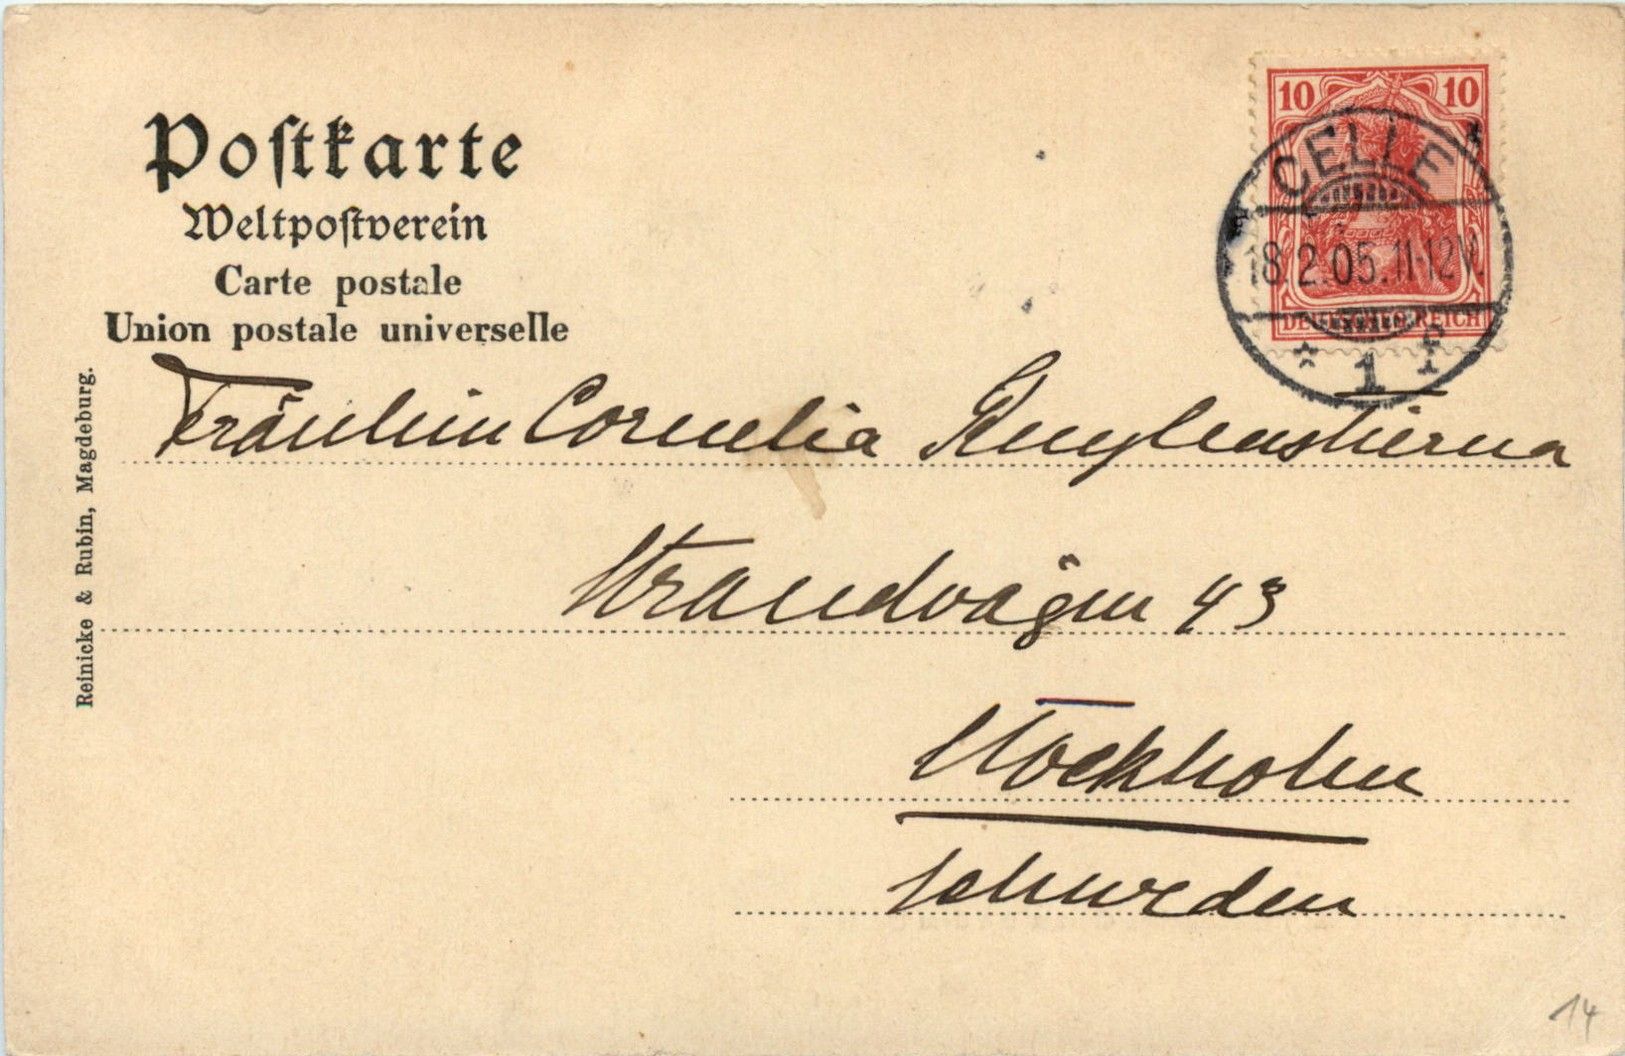 Postkarte
Weltpostverein
Carte postale
Union postale universelle
Reinicke & Rubin, Magdeburg.
10 10
DEUTSCHES REICH
CELLE
18.2.05.11-12V.
* 1 f
Fräulein Cornelia Rengenstierna
Strandvägen 43
Stockholm
Schweden
14